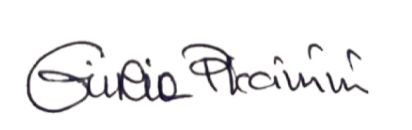 Giulia Piccinini